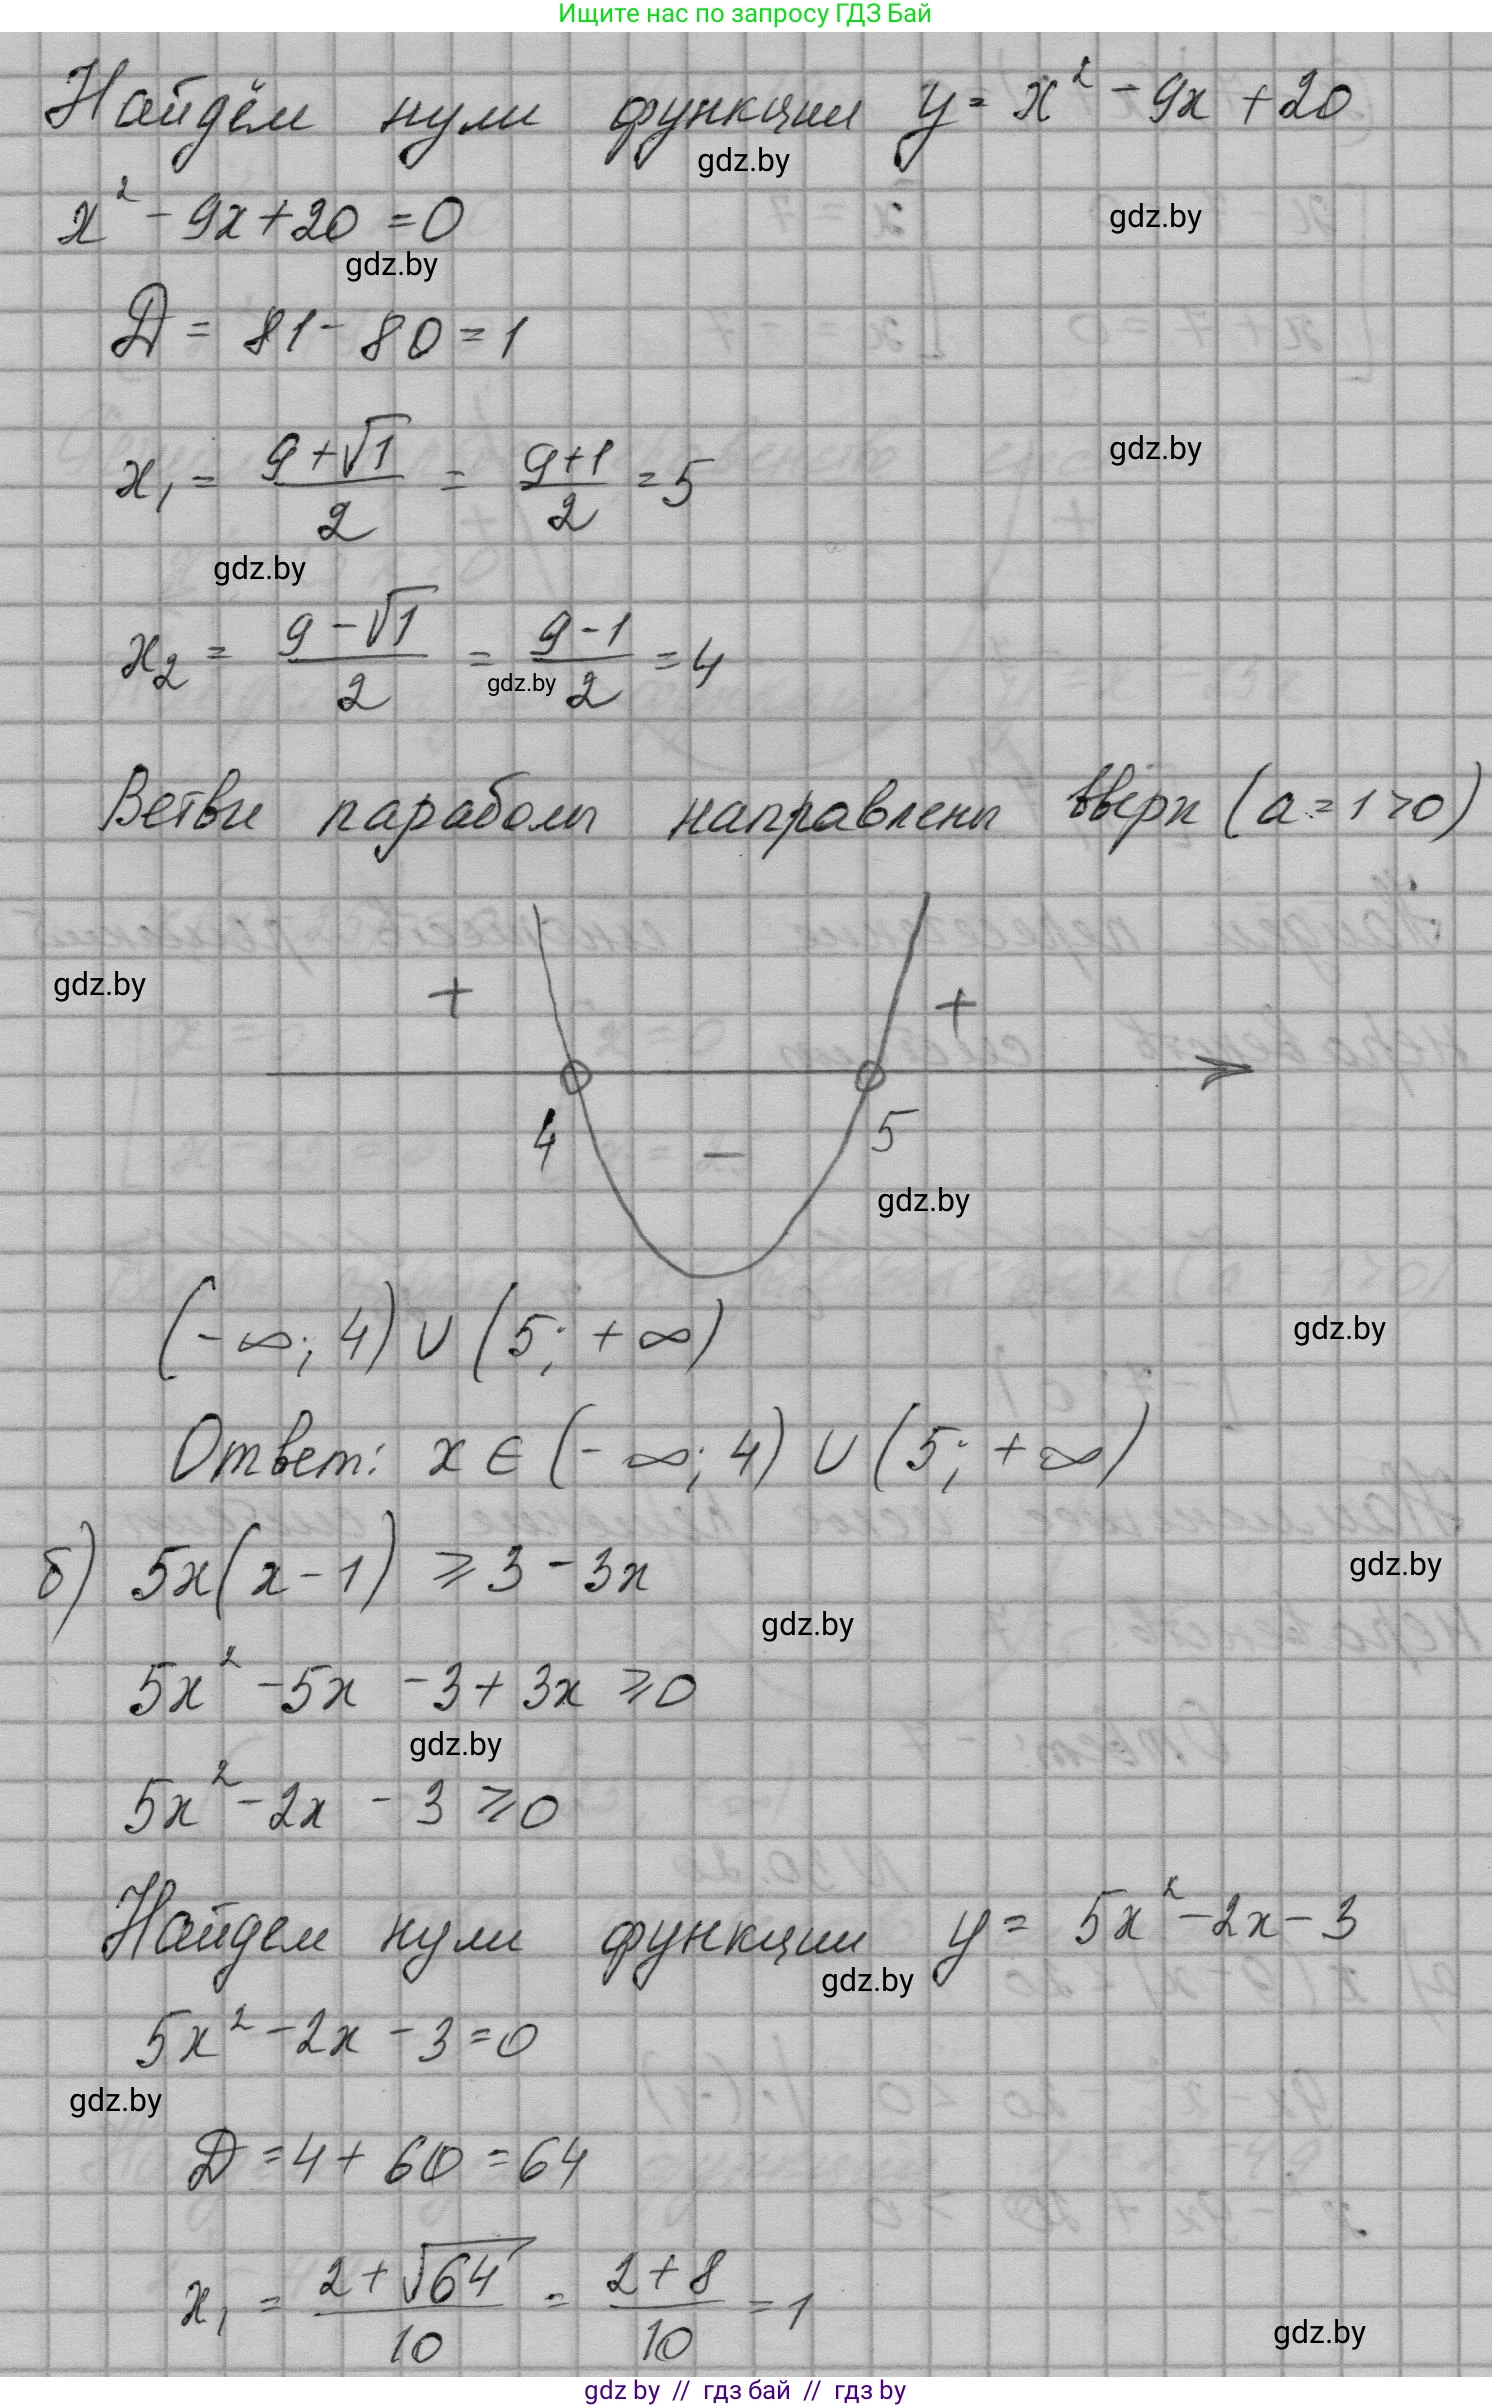 Ищите нас по запросу ГДЗ Бай
Найдём нули функции y = x² - 9x + 20
gdz.by
x² - 9x + 20 = 0
gdz.by
gdz.by
D = 81 - 80 = 1
x₁ = (9 + √1)/2 = (9 + 1)/2 = 5
gdz.by
gdz.by
x₂ = (9 - √1)/2 = (9 - 1)/2 = 4
gdz.by
Ветви параболы направлены вверх (a = 1 > 0)
gdz.by
+ +
4 - 5
gdz.by
(-∞; 4) ∪ (5; +∞)
gdz.by
Ответ: x ∈ (-∞; 4) ∪ (5; +∞)
б) 5x(x - 1) ⩾ 3 - 3x
gdz.by
gdz.by
5x² - 5x - 3 + 3x ⩾ 0
gdz.by
5x² - 2x - 3 ⩾ 0
Найдем нули функции y = 5x² - 2x - 3
gdz.by
5x² - 2x - 3 = 0
gdz.by
D = 4 + 60 = 64
x₁ = (2 + √64)/10 = (2 + 8)/10 = 1
gdz.by
gdz by // гдз бай // гдз by